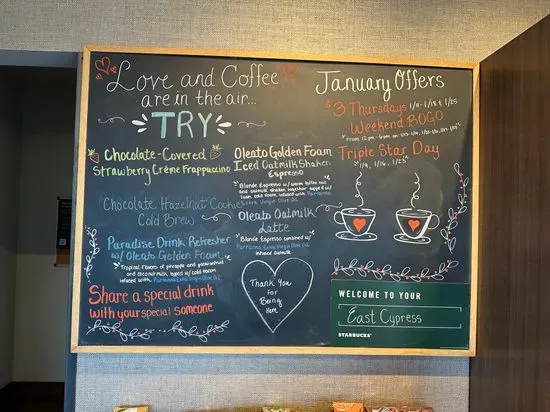 Love and Coffee
are in the air...
TRY
Chocolate-Covered
Strawberry Crème Frappuccino
Chocolate Hazelnut Cookie
Cold Brew
Paradise Drink Refresher
w/ Oleato Golden Foam
Tropical flavors of pineapple and passionfruit
and coconutmilk topped w/ cold foam
infused with Partanna Extra Virgin Olive Oil
Share a special drink
with your special someone
Oleato Golden Foam
Iced Oatmilk Shaken
Espresso
Blonde Espresso w/
and oatmilk shaken together topped w/
cold foam infused with Partanna
Extra Virgin Olive Oil
Oleato Oatmilk
Latte
Blonde Espresso combined w/
Partanna Extra Virgin Olive Oil
infused Oatmilk
Thank You
for
Being
Here
January Offers
$3 Thursdays 1/11-1/18 & 1/25
Weekend BOGO
From 12 pm - 6 pm on
Triple Star Day
1/9, 1/16, 1/23
WELCOME TO YOUR
East Cypress
STARBUCKS